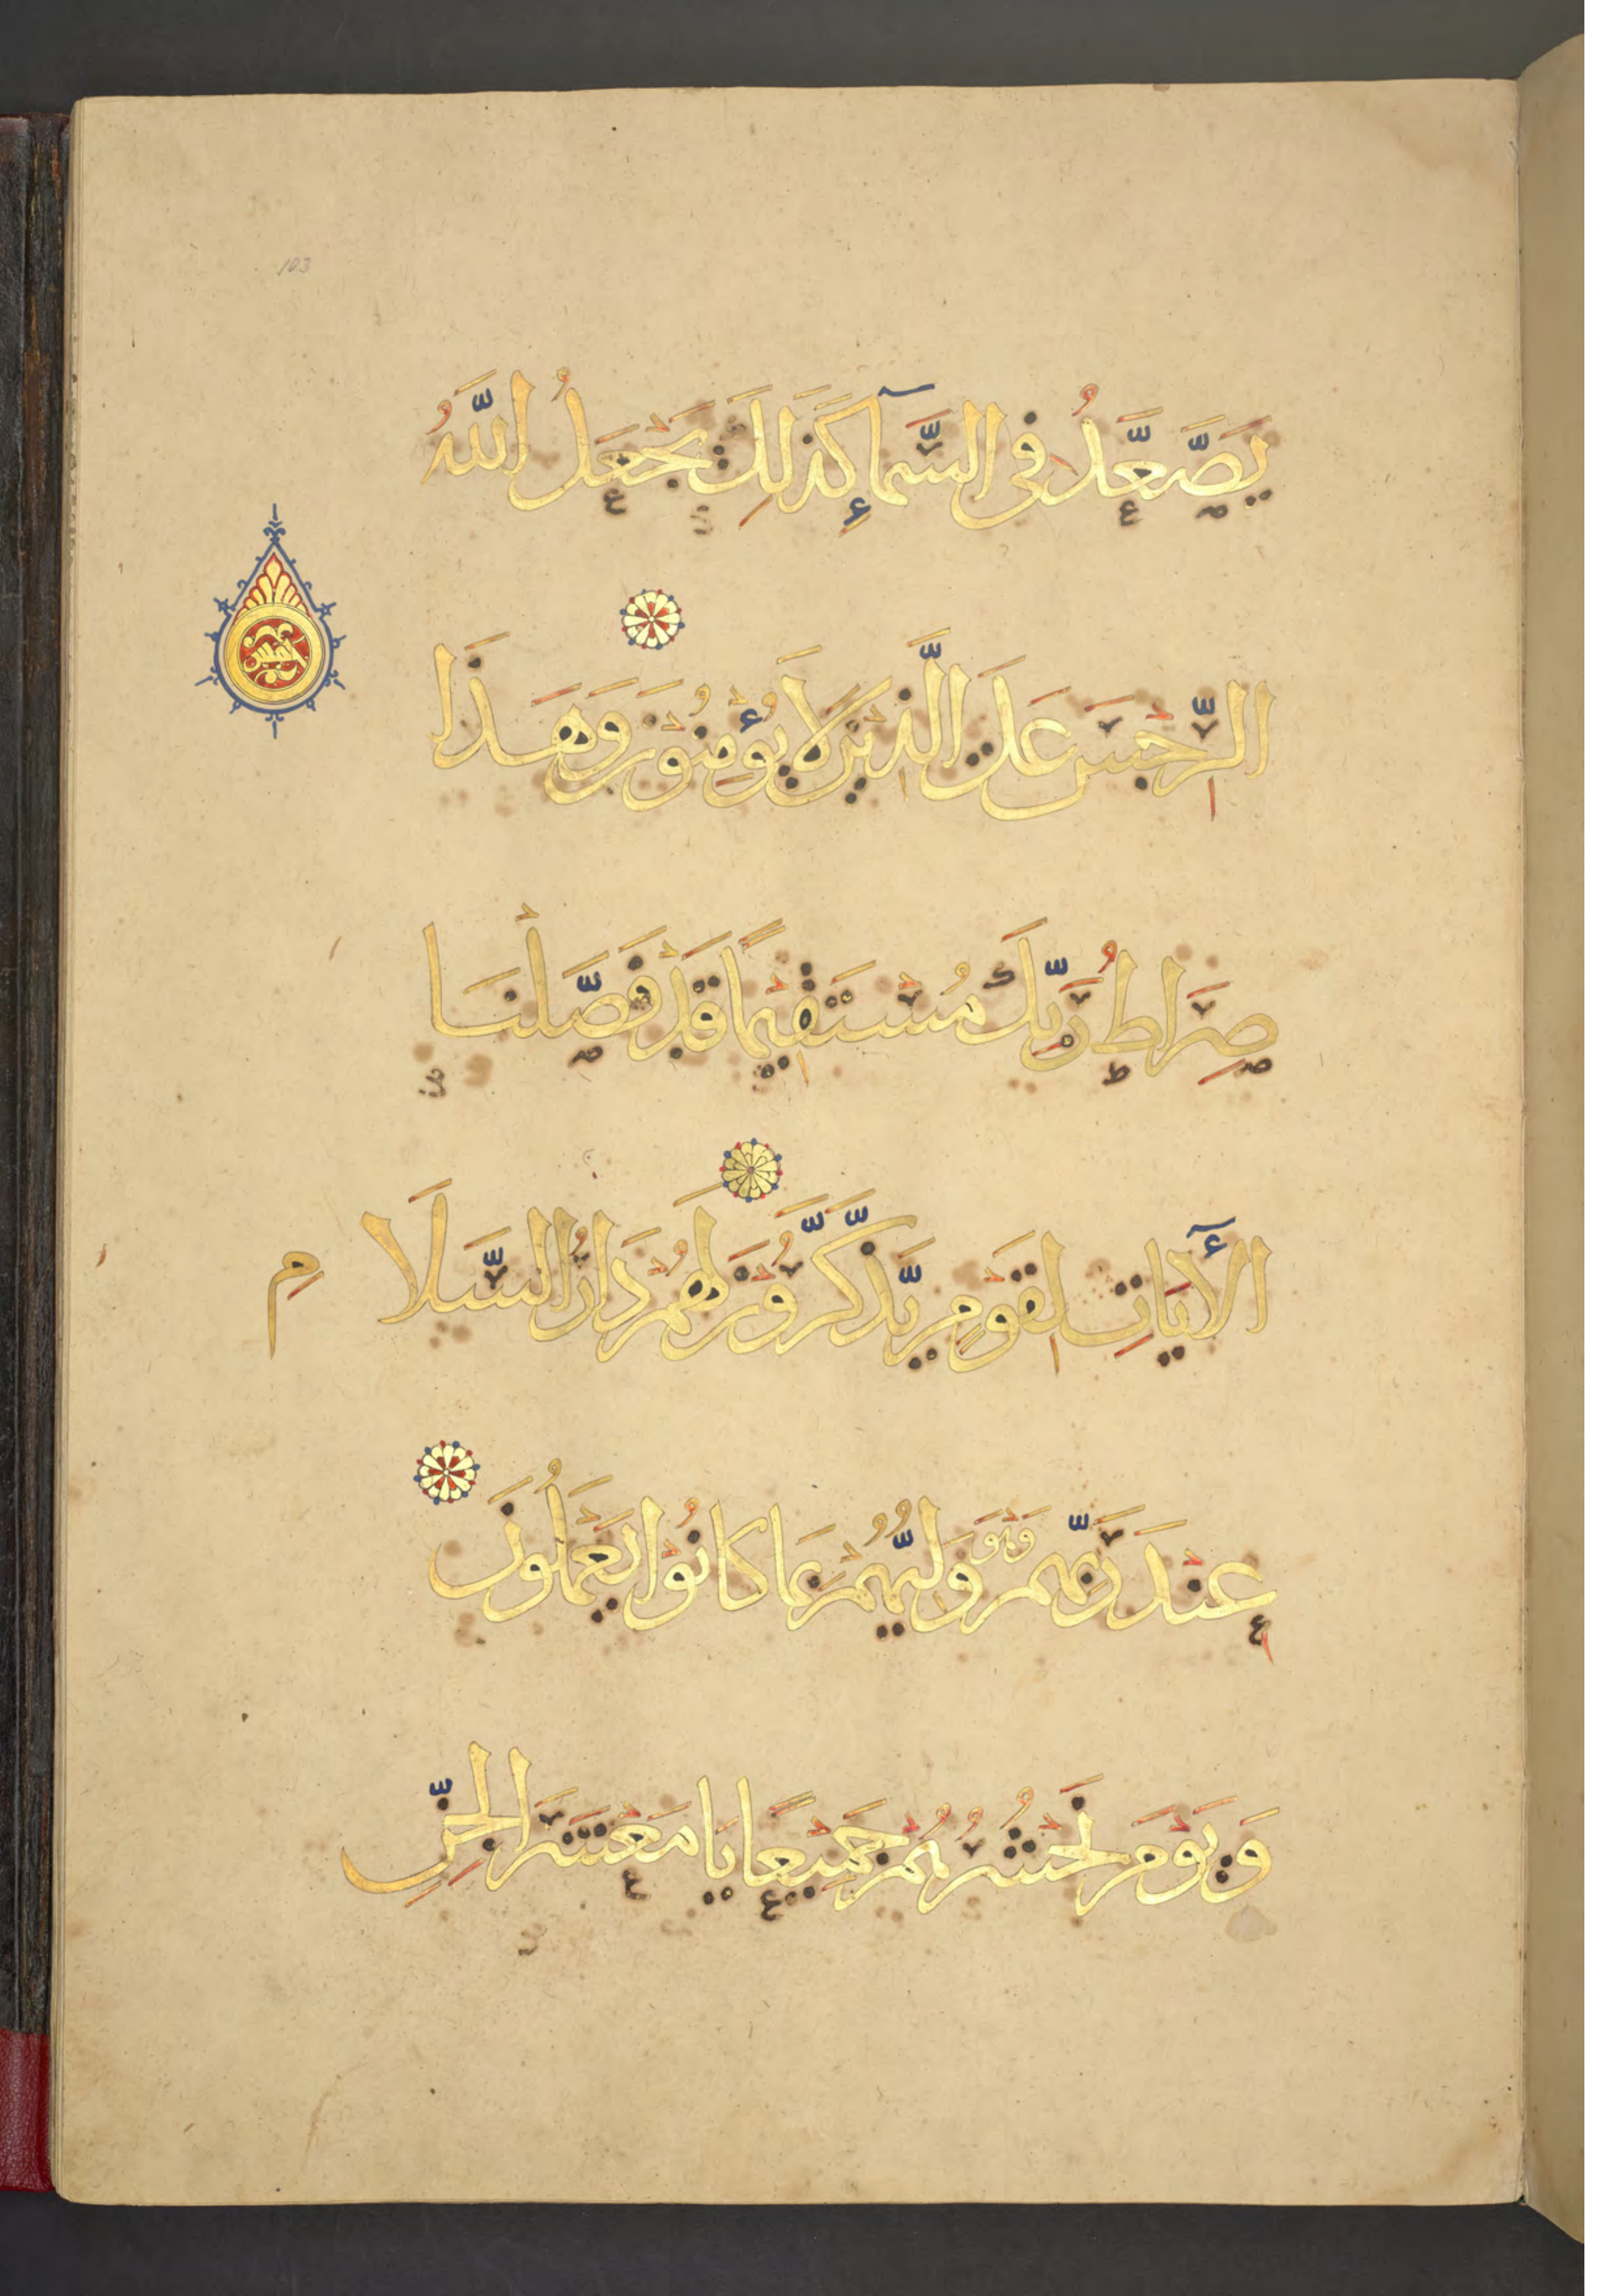 103
يَصَّعَّدُ فِى السَّمَآءِ كَذَلِكَ يَجْعَلُ اللَّهُ
الرِّجْسَ عَلَى الَّذِينَ لَا يُؤْمِنُوْنَ وَهَذَا
صِرَاطُ رَبِّكَ مُسْتَقِيْمًا قَدْ فَصَّلْنَا
الْآيَاتِ لِقَوْمٍ يَذَّكَّرُوْنَ لَهُمْ دَارُ السَّلَامِ
عِنْدَ رَبِّهِمْ وَهُوَ وَلِيُّهُمْ بِمَا كَانُوْا يَعْمَلُونَ
وَيَوْمَ نَحْشُرُهُمْ جَمِيْعًا يَا مَعْشَرَ الْجِنِّ